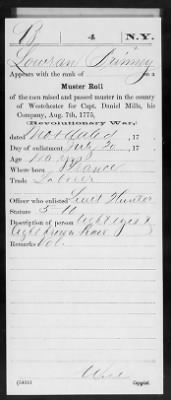 B 4 N.Y.
Appears with the rank of on a
Muster Roll
of the men raised and passed muster in the county
of Westchester for Capt. Daniel Mills, his
Company, Aug. 7th, 1775,
(Revolutionary War,)
dated Not dated, 17
Date of enlistment July 20, 17
Age
Where born France
Trade Laborer
Officer who enlisted Lieut Hunter
Stature 5-11
Description of person light eyes &
light brown hair
Remarks:
Copyist.